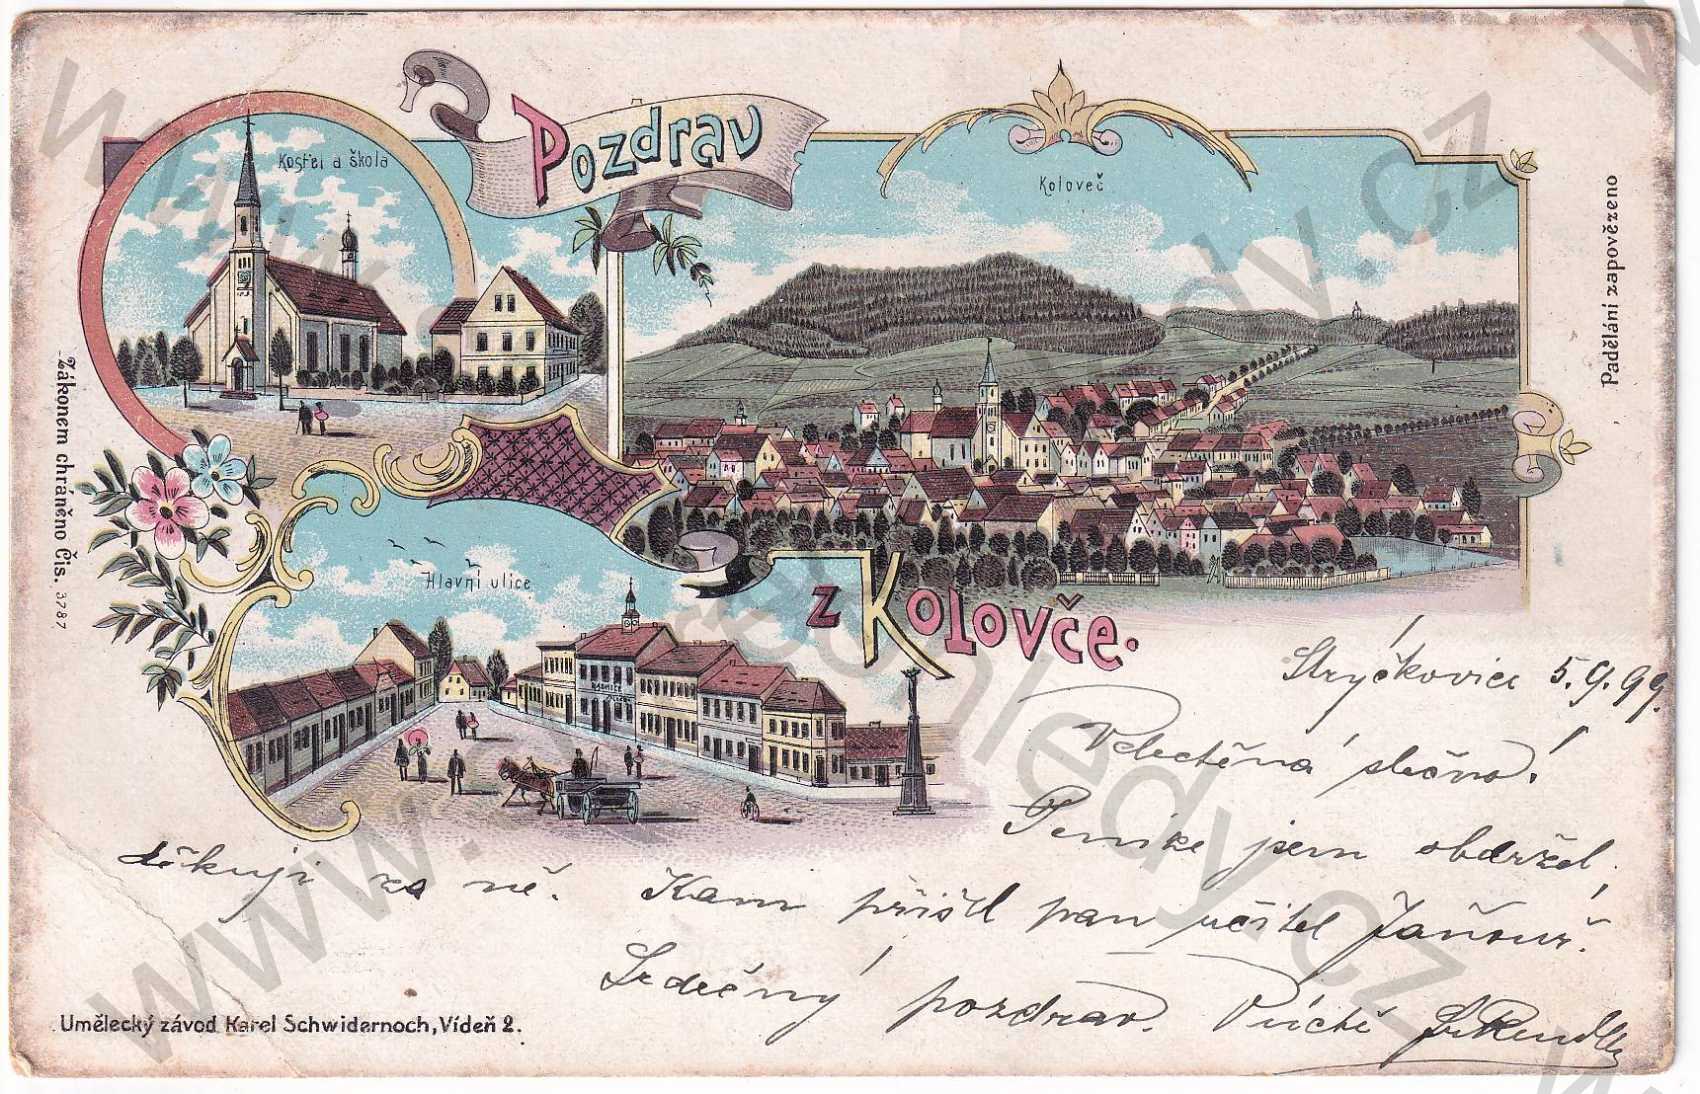 Pozdrav
z Kolovče.
Kostel a škola
Koloveč
Hlavní ulice
RADNICE
Padělání zapovězeno
Zákonem chráněno Čis. 3787
Stryčkovice 5.9.99.
Velectěná slečno!
Peníze jsem obdržel.
děkuji za ně. Kam přišel pan učitel
Srdečný pozdrav.
Umělecký závod Karel Schwidernoch, Vídeň 2.
www.predhledy.cz